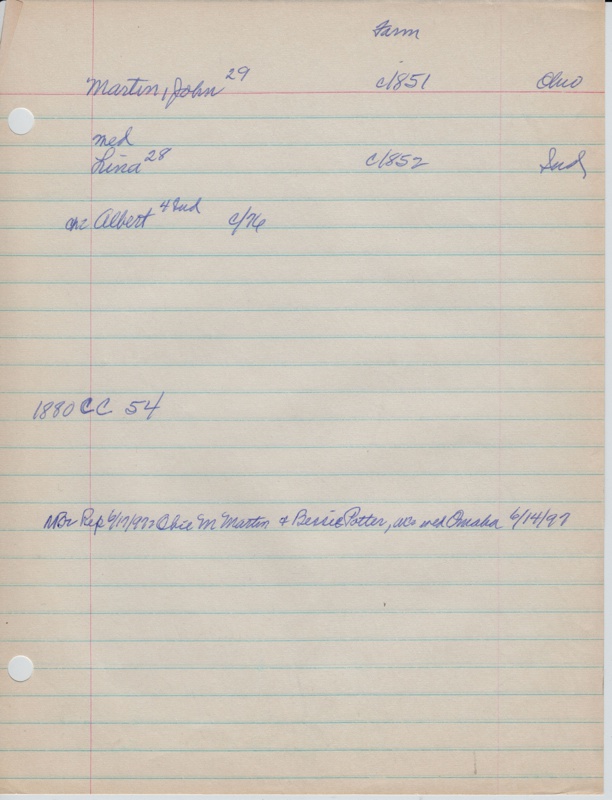 Farm
Martin, John 29 c/1851 Ohio
med
Lina 28 c/1852 Ind
ch: Albert 4 Ind c/76
1880 CC 54
NBr Rep 6/17/97: Obie M Martin & Bessie Potter, med Omaha 6/14/97